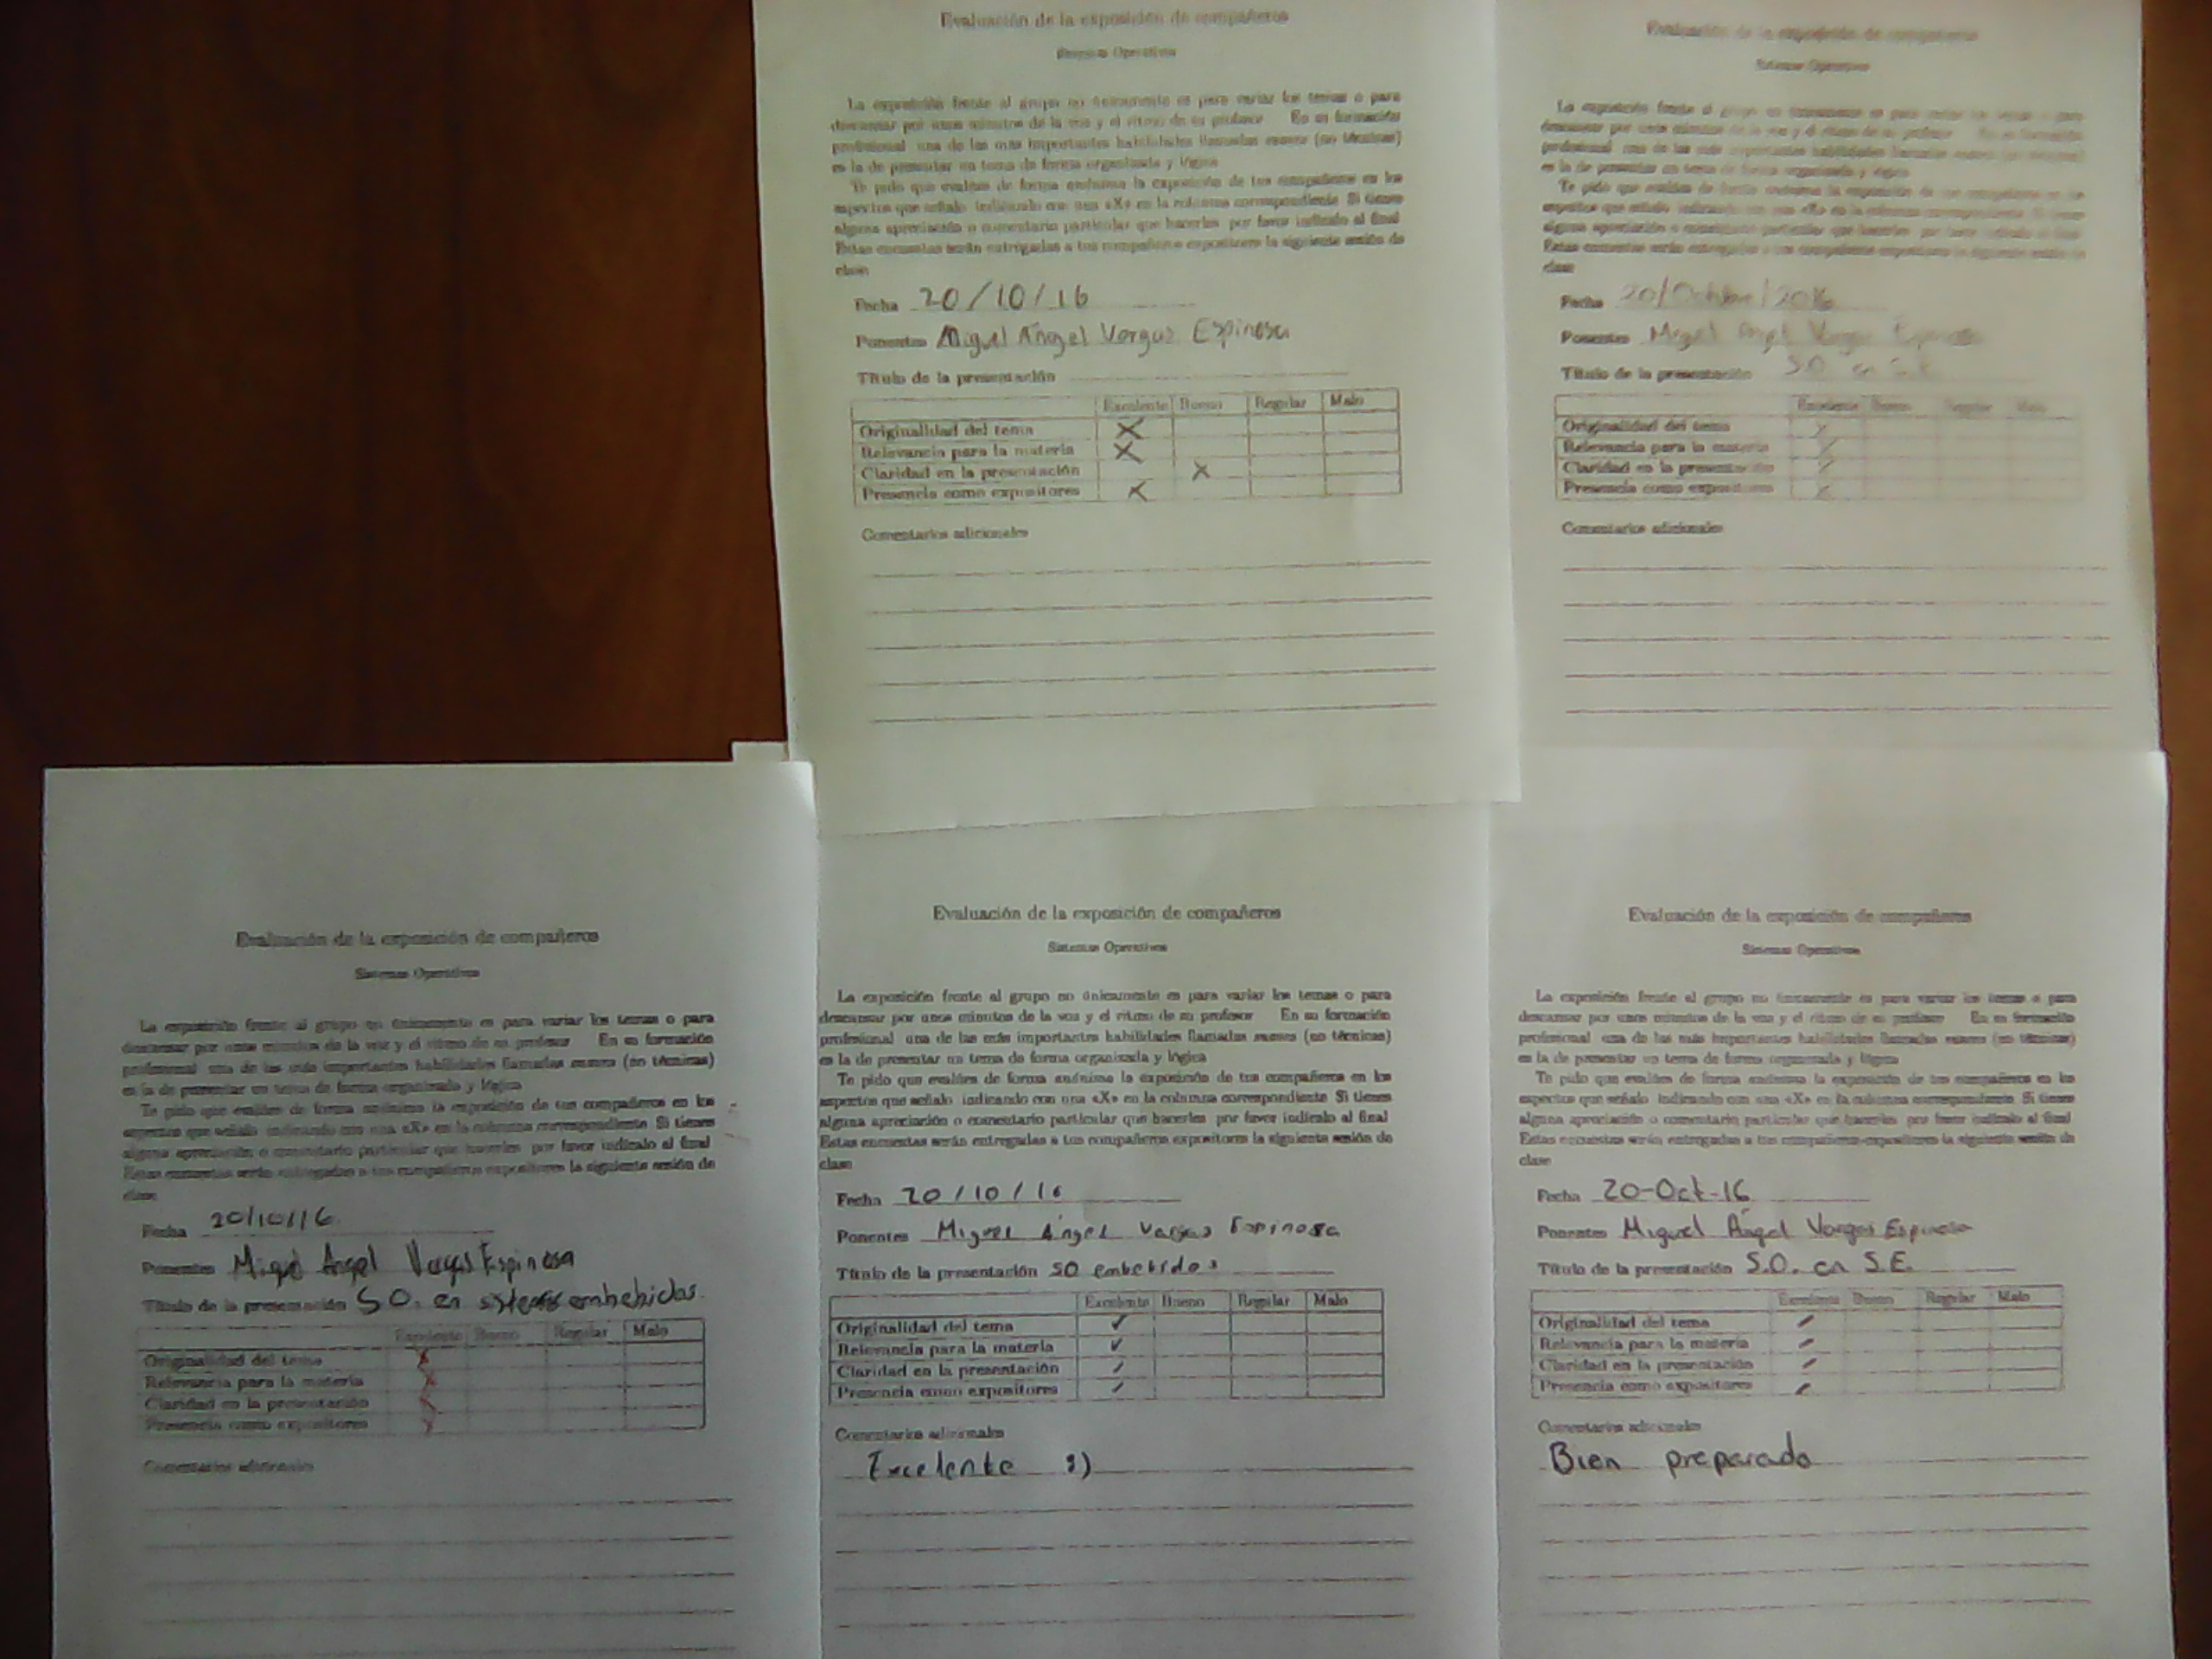 Evaluación de la exposición de compañeros
Sistemas Operativos
La exposición frente al grupo no únicamente es para variar los temas o para
descansar por unos minutos de la voz y el ritmo de su profesor En su formación
profesional una de las más importantes habilidades llamadas suaves (no técnicas)
es la de presentar un tema de forma organizada y lógica
Te pido que evalúes de forma anónima la exposición de tus compañeros en los
aspectos que señalo indicando con una «X» en la columna correspondiente Si tienes
alguna apreciación o comentario particular que hacerles por favor indícalo al final
Estas encuestas serán entregadas a tus compañeros expositores la siguiente sesión de
clase
Fecha 20/10/16
Ponentes Miguel Ángel Vargas Espinosa
Título de la presentación
Excelente Bueno Regular Malo
Originalidad del tema X
Relevancia para la materia X
Claridad en la presentación X
Presencia como expositores X
Comentarios adicionales
Evaluación de la exposición de compañeros
Sistemas Operativos
La exposición frente al grupo no únicamente es para variar los temas o para
descansar por unos minutos de la voz y el ritmo de su profesor En su formación
profesional una de las más importantes habilidades llamadas suaves (no técnicas)
es la de presentar un tema de forma organizada y lógica
Te pido que evalúes de forma anónima la exposición de tus compañeros en los
aspectos que señalo indicando con una «X» en la columna correspondiente Si tienes
alguna apreciación o comentario particular que hacerles por favor indícalo al final
Estas encuestas serán entregadas a tus compañeros expositores la siguiente sesión de
clase
Fecha 20/Octubre/2016
Ponentes Miguel Angel Vargas Espinosa
Título de la presentación S.O. en
Excelente Bueno Regular Malo
Originalidad del tema X
Relevancia para la materia X
Claridad en la presentación X
Presencia como expositores X
Comentarios adicionales
Evaluación de la exposición de compañeros
Sistemas Operativos
La exposición frente al grupo no únicamente es para variar los temas o para
descansar por unos minutos de la voz y el ritmo de su profesor En su formación
profesional una de las más importantes habilidades llamadas suaves (no técnicas)
es la de presentar un tema de forma organizada y lógica
Te pido que evalúes de forma anónima la exposición de tus compañeros en los
aspectos que señalo indicando con una «X» en la columna correspondiente Si tienes
alguna apreciación o comentario particular que hacerles por favor indícalo al final
Estas encuestas serán entregadas a tus compañeros expositores la siguiente sesión de
clase
Fecha 20/10/16
Ponentes Miguel Angel Vargas Espinosa
Título de la presentación S.O. en sistemas embebidos.
Excelente Bueno Regular Malo
Originalidad del tema X
Relevancia para la materia X
Claridad en la presentación X
Presencia como expositores X
Comentarios adicionales
Evaluación de la exposición de compañeros
Sistemas Operativos
La exposición frente al grupo no únicamente es para variar los temas o para
descansar por unos minutos de la voz y el ritmo de su profesor En su formación
profesional una de las más importantes habilidades llamadas suaves (no técnicas)
es la de presentar un tema de forma organizada y lógica
Te pido que evalúes de forma anónima la exposición de tus compañeros en los
aspectos que señalo indicando con una «X» en la columna correspondiente Si tienes
alguna apreciación o comentario particular que hacerles por favor indícalo al final
Estas encuestas serán entregadas a tus compañeros expositores la siguiente sesión de
clase
Fecha 20/10/16
Ponentes Miguel Ángel Vargas Espinosa
Título de la presentación SO embebidos
Excelente Bueno Regular Malo
Originalidad del tema ✓
Relevancia para la materia ✓
Claridad en la presentación ✓
Presencia como expositores ✓
Comentarios adicionales
Excelente :)
Evaluación de la exposición de compañeros
Sistemas Operativos
La exposición frente al grupo no únicamente es para variar los temas o para
descansar por unos minutos de la voz y el ritmo de su profesor En su formación
profesional una de las más importantes habilidades llamadas suaves (no técnicas)
es la de presentar un tema de forma organizada y lógica
Te pido que evalúes de forma anónima la exposición de tus compañeros en los
aspectos que señalo indicando con una «X» en la columna correspondiente Si tienes
alguna apreciación o comentario particular que hacerles por favor indícalo al final
Estas encuestas serán entregadas a tus compañeros expositores la siguiente sesión de
clase
Fecha 20-Oct-16
Ponentes Miguel Ángel Vargas Espinosa
Título de la presentación S.O. en S.E.
Excelente Bueno Regular Malo
Originalidad del tema ✓
Relevancia para la materia ✓
Claridad en la presentación ✓
Presencia como expositores ✓
Comentarios adicionales
Bien preparado